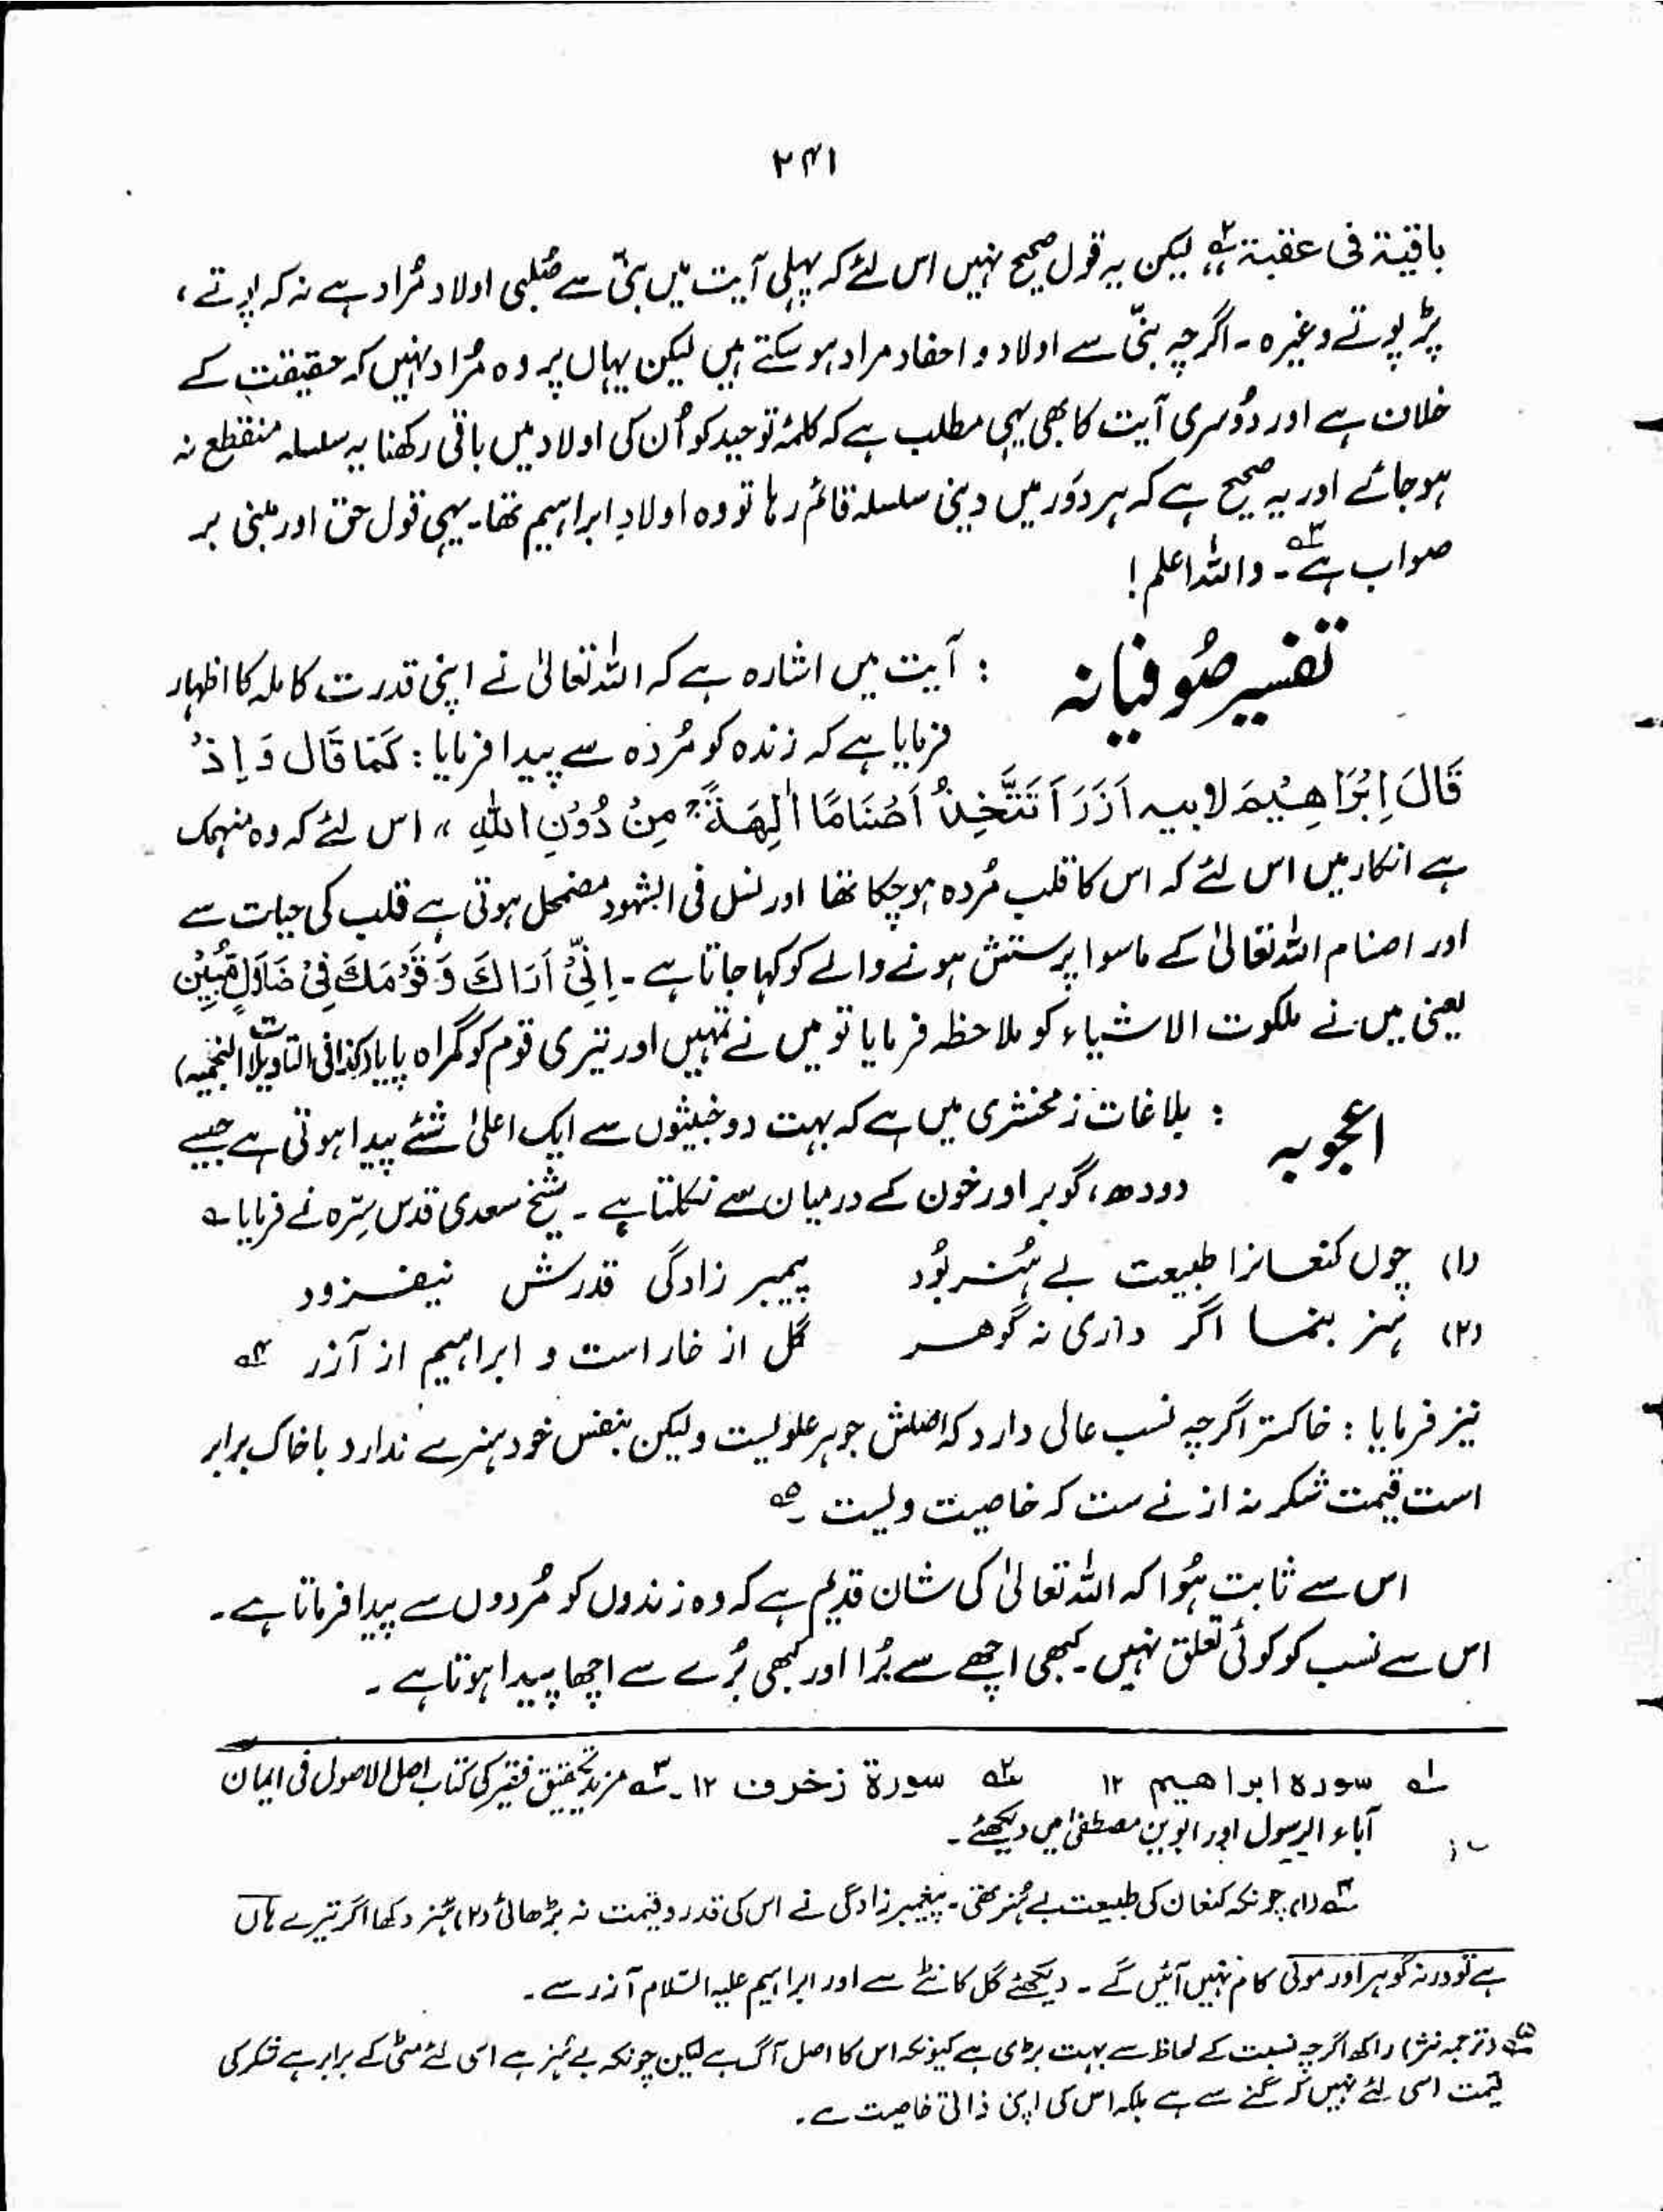 ۲۴۱
باقیۃ فی عقبۃ؂۲ "لیکن یہ قول صحیح نہیں اس لئے کہ پہلی آیت میں بنیّ سے صُلبی اولاد مُراد ہے نہ کہ پوتے،
پڑپوتے وغیرہ ۔ اگرچہ بنیّ سے اولاد و احفاد مراد ہو سکتے ہیں لیکن یہاں پر وہ مُراد نہیں کہ حقیقت کے
خلاف ہے اور دُوسری آیت کا بھی یہی مطلب ہے کہ کلمۂ توحید کو اُن کی اولاد میں باقی رکھنا یہ سلسلہ منقطع نہ
ہو جائے اور یہ صحیح ہے کہ ہر دَور میں دینی سلسلہ قائم رہا تو وہ اولادِ ابراہیم تھا۔ یہی قول حق اور مبنی بر
صواب ہے؂۳۔ واللہ اعلم !
تفسیر صُوفیانہ : آیت میں اشارہ ہے کہ اللہ تعالیٰ نے اپنی قدرت کاملہ کا اظہار
فرمایا ہے کہ زندہ کو مُردہ سے پیدا فرمایا : کَمَا قَالَ وَ اِذْ
قَالَ اِبْرَاھِیْمَ لابیہ اَذَرَ اَتَتَّخِذُ اَصْنَامًا اٰلِھَۃً ج مِنْ دُوْنِ اللہِ " اس لئے کہ وہ منہمک
ہے انکار میں اس لئے کہ اس کا قلب مُردہ ہوچکا تھا اور نسل فی الشہود مضمحل ہوتی ہے قلب کی حیات سے
اور اصنام اللہ تعالیٰ کے ماسوا پرستش ہونے والے کو کہا جاتا ہے ۔ اِنِّیْ اَرَاکَ وَ قَوْمَکَ فِیْ ضَلَالٍ مُّبِیْنٍ
یعنی میں نے ملکوت الاشیاء کو ملاحظہ فرمایا تو میں نے تمہیں اور تیری قوم کو گمراہ پایا (کذا فی التاویلات النجمیہ)
اعجوبہ : بلاغات زمخشری میں ہے کہ بہت دو خبیثوں سے ایک اعلیٰ شئے پیدا ہوتی ہے جیسے
دودھ، گوبر اور خون کے درمیان سے نکلتا ہے ۔ شیخ سعدی قدس سِرّہ نے فرمایا ؎
(۱) چوں کنعانرا طبیعت بے ہُنر بُود پیمبر زادگی قدرش نیفزود
(۲) ہنر بنما اگر داری نہ گوھر گل از خار است و ابراہیم از آزر ؂۴
نیز فرمایا : خاکستر اگرچہ نسب عالی دارد کہ اصلش جوہر علویست ولیکن بنفس خود ہنرے ندارد باخاک برابر
است قیمت شکر نہ از نے ست کہ خاصیت ویست ۔؂۵
اس سے ثابت ہُوا کہ اللہ تعالیٰ کی شان قدیم ہے کہ وہ زندوں کو مُردوں سے پیدا فرماتا ہے ۔
اس سے نسب کو کوئی تعلق نہیں ۔ کبھی اچھے سے بُرا اور کبھی بُرے سے اچھا پیدا ہوتا ہے ۔
؂۱ سورہ ابراھیم ۱۲ ؂۲ سورۃ زخرف ۱۲ ۔ ؂۳ مزید تحقیق فقیر کی کتاب اصل الاصول فی ایمان
آباء الرسول اور ابوین مصطفیٰ میں دیکھئے ۔
؂۴ (۱) چونکہ کنعان کی طبیعت بے ہُنر تھی ۔ پیغمبر زادگی نے اس کی قدر و قیمت نہ بڑھائی (۲) ہُنر دکھا اگر تیرے ہاں
ہے تو ورنہ گوہر اور موتی کام نہیں آئیں گے ۔ دیکھئے گل کانٹے سے اور ابراہیم علیہ السّلام آذر سے ۔
؂۵ (ترجمہ نثر) راکھ اگرچہ نسبت کے لحاظ سے بہت بڑی ہے کیونکہ اس کا اصل آگ ہے لیکن چونکہ بے ہُنر ہے اسی لئے مٹی کے برابر ہے شکر کی
قیمت اسی لئے نہیں کہ گنے سے ہے بلکہ اس کی اپنی ذاتی خاصیت ہے ۔